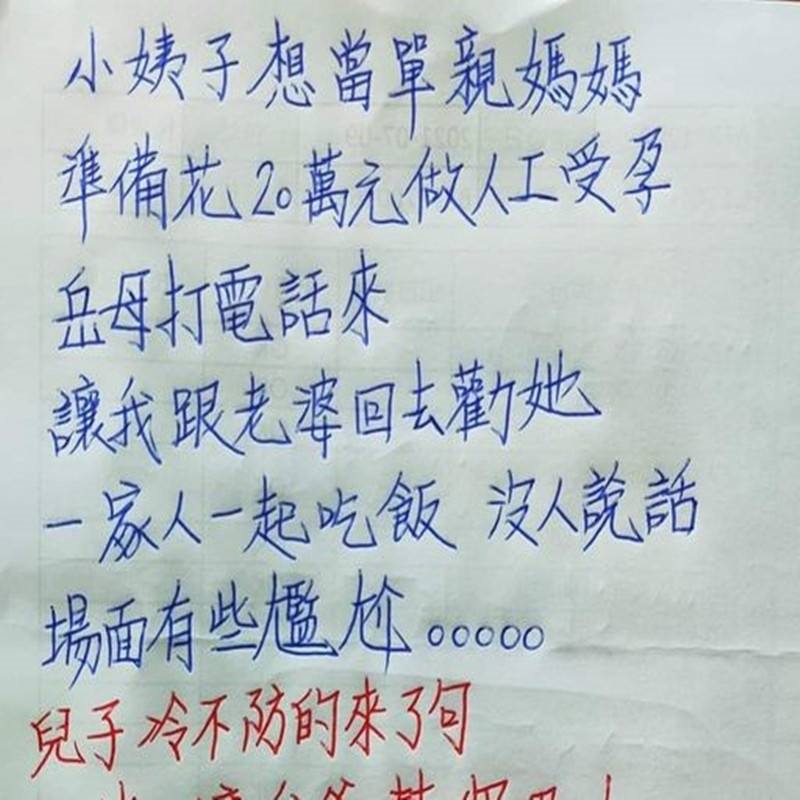 小姨子想當單親媽媽
準備花20萬元做人工受孕
岳母打電話來
讓我跟老婆回去勸她
一家人一起吃飯 沒人說話
場面有些尷尬。。。。。
兒子冷不防的來了句